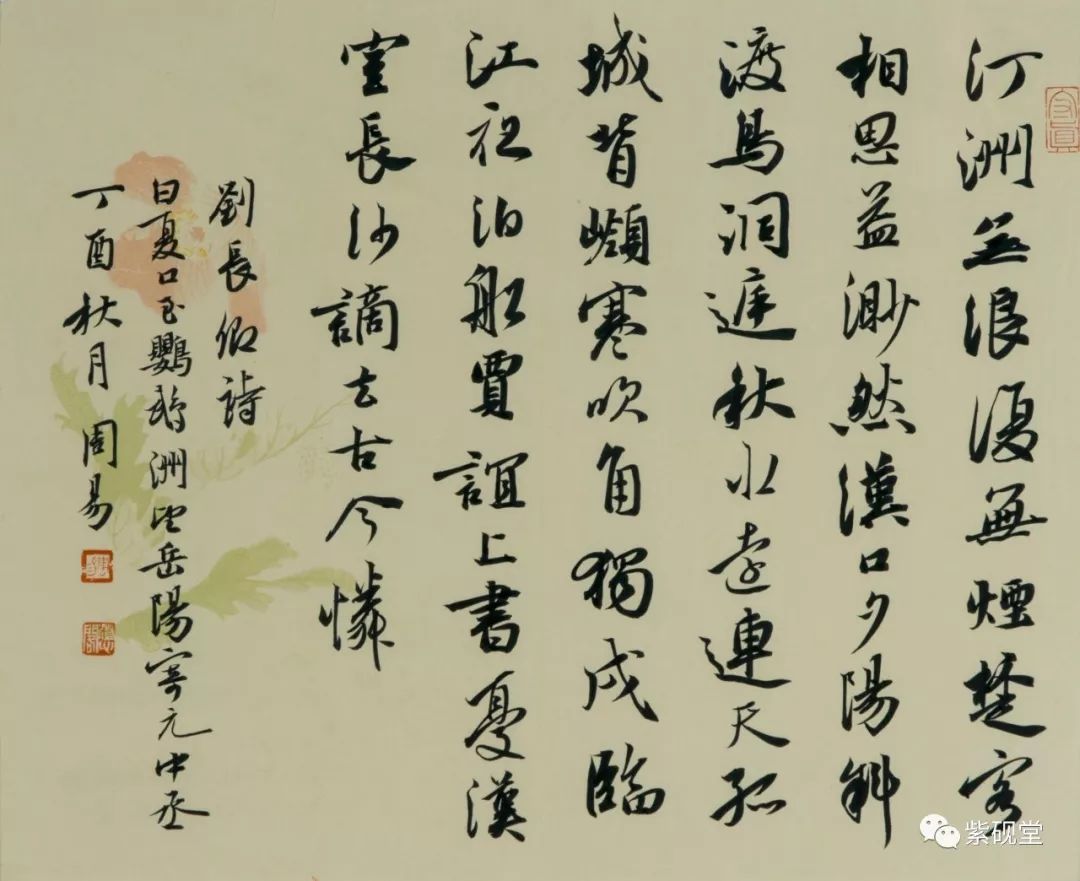 汀洲無浪復無煙楚客
相思益渺然漢口夕陽斜
渡鳥洞庭秋水遠連天孤
城背嶺寒吹角獨戍臨
江夜泊船賈誼上書憂漢
室長沙謫去古今憐
劉長卿詩
自夏口至鸚鵡洲望岳陽寄元中丞
丁酉秋月 周易
紫砚堂